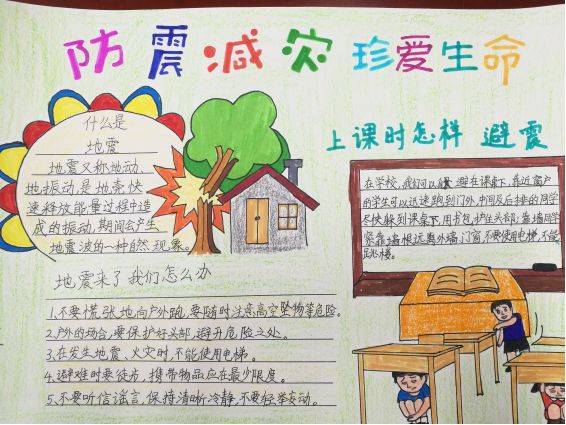 防震减灾 珍爱生命
什么是
地震
地震又称地动、
地振动,是地壳快
速释放能量过程中造
成的振动,期间会产生
地震波的一种自然现象。
地震来了我们怎么办
1.不要慌张地向户外跑,要随时注意高空坠物等危险。
2.户外的场合,要保护好头部,避开危险之处。
3.在发生地震、火灾时,不能使用电梯。
4.避难时要徒步,携带物品应在最少限度。
5.不要听信谣言,保持清晰冷静,不要轻举妄动。
上课时怎样 避震
在学校,我们可以 避在课桌下,靠近窗户
的学生可以迅速跑到门外,中间及后排的同学
尽快躲到课桌下,用书包护住头部;靠墙同学
紧靠墙根远离外墙、门窗,不要使用电梯,不能
跳楼。